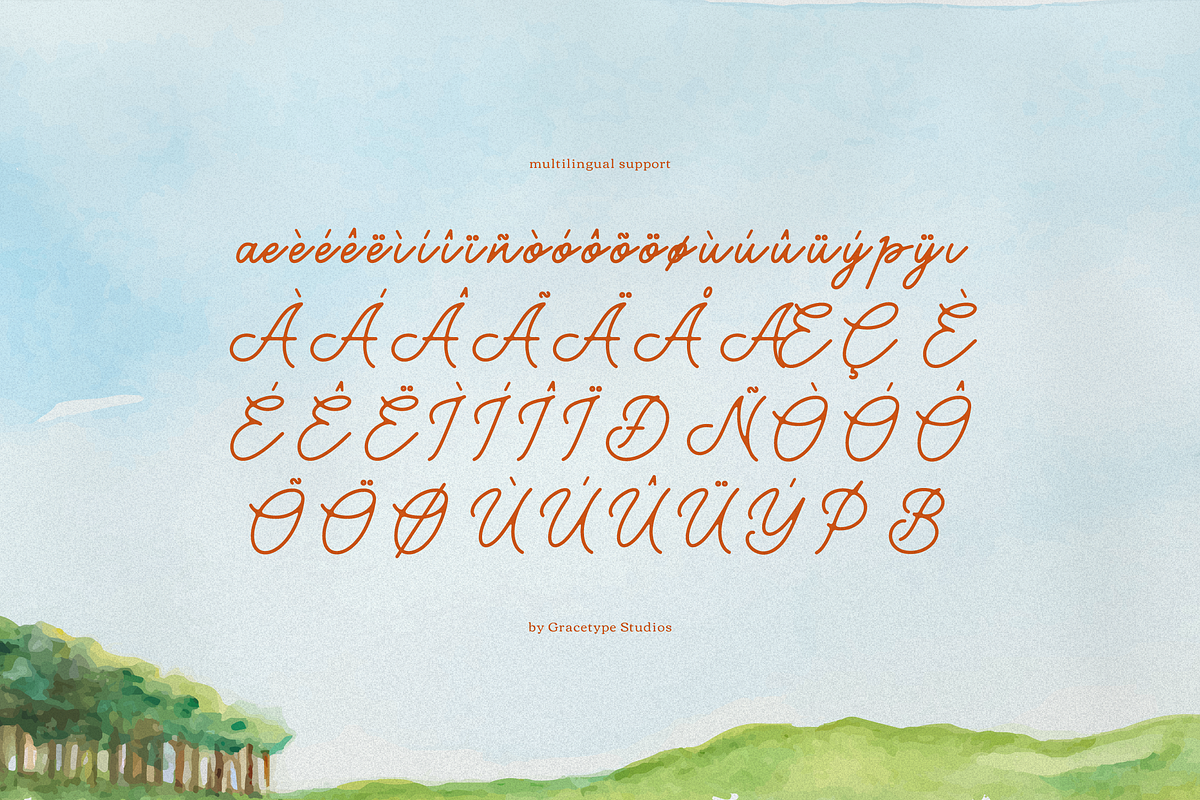 multilingual support
aeèéêëìíîïñòóôõöøùúûüýþÿı
ÀÁÂÃÄÅÆÇÈ
ÉÊËÌÍÎÏÐÑÒÓÔ
ÕÖØÙÚÛÜÝÞB
by Gracetype Studios